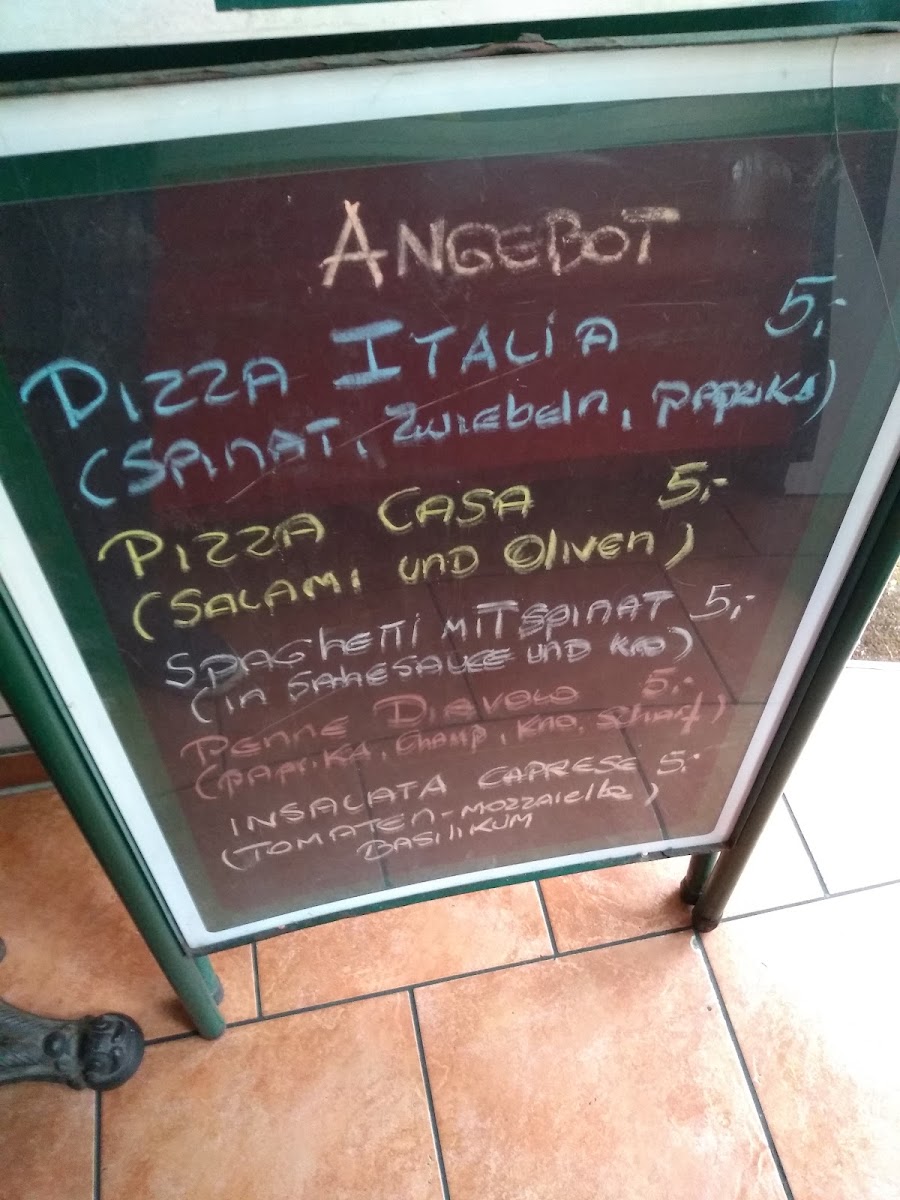 ANGEBOT
PIZZA ITALIA 5,-
(SPINAT, Zwiebeln, PAPRIKA)
PIZZA CASA 5,-
(SALAMI UND OLIVEN)
SPAGHETTI MIT SPINAT 5,-
(IN SAHESAUCE UND KNO)
PENNE DIAVOLO 5,-
(PAPRIKA, CHAMP, KNO, SCHARF)
INSALATA CAPRESE 5,-
(TOMATEN-MOZZARELLA)
BASILIKUM